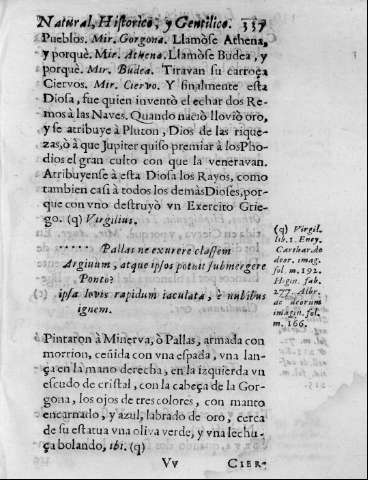 Natural, Historico, y Gentilico. 337
Pueblos. Mir. Gorgona. Llamòse Athena,
y porquè. Mir. Athena. Llamòse Budea, y
porquè. Mir. Budea. Tiravan su carroça
Ciervos. Mir. Ciervo. Y finalmente esta
Diosa, fue quien inventò el echar dos Re-
mos à las Naves. Quando naciò lloviò oro,
y se atribuye à Pluton, Dios de las rique-
zas, ò à que Jupiter quiso premiar à los Pho-
dios el gran culto con que la veneravan.
Atribuyense à esta Diosa los Rayos, como
tambien casi à todos los demàs Dioses, por-
que con vno destruyò vn Exercito Grie-
go. (q) Virgilius.
...... Pallas ne exurere classem
Argiuum, atque ipsos potuit submergere
Ponto?
ipsa Iovis rapidum iaculata, è nubibus
ignem.
(q) Virgil.
lib. 1. Eney.
Carthar. de
deor. imag.
fol. m. 192.
Higin. fab.
277. Albr.
ac deorum
imagin. fol.
m. 166.
Pintaron à Minerva, ò Pallas, armada con
morrion, ceñida con vna espada, vna lan-
ça en la mano derecha, en la izquierda vn
escudo de cristal, con la cabeça de la Gor-
gona, los ojos de tres colores, con manto
encarnado, y azul, labrado de oro, cerca
de su estatua vna oliva verde, y vna lechu-
ça bolando, ibi. (q)
Vv CIER-